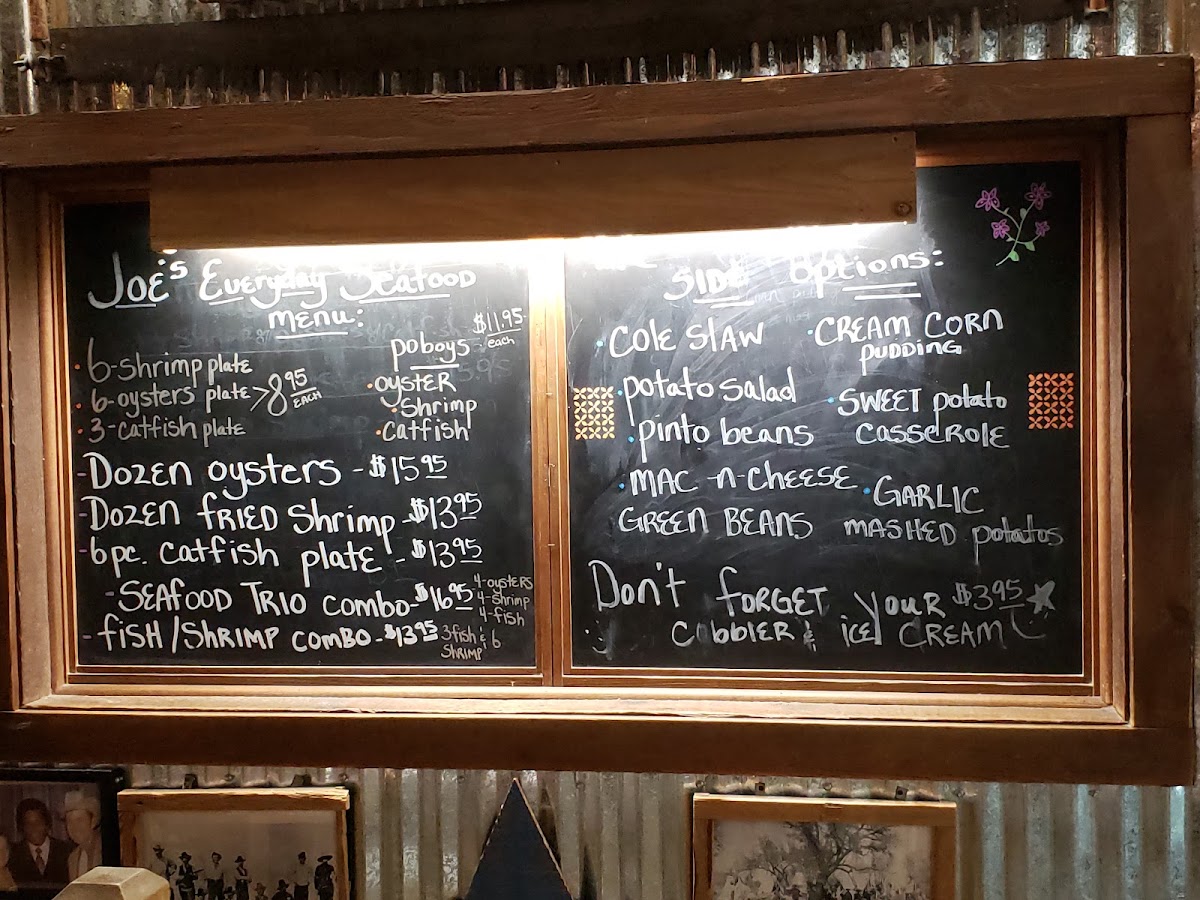 Joe's Everyday Seafood
menu:
6-shrimp plate
6-oysters plate > 8 95 EACH
3-catfish plate
poboys $11.95 each
oyster
shrimp
catfish
-Dozen oysters - $15 95
-Dozen fried shrimp - $13 95
-6 pc. catfish plate - $13 95
-Seafood Trio combo - $16 95
4-oysters
4-shrimp
4-fish
-fish/shrimp combo - $13 95
3 fish & 6
shrimp
Side Options:
Cole Slaw
potato salad
pinto beans
Mac-n-Cheese
Green Beans
Cream Corn
pudding
Sweet potato
casserole
Garlic
mashed potatos
Don't forget your $3 95
cobbler & ice cream